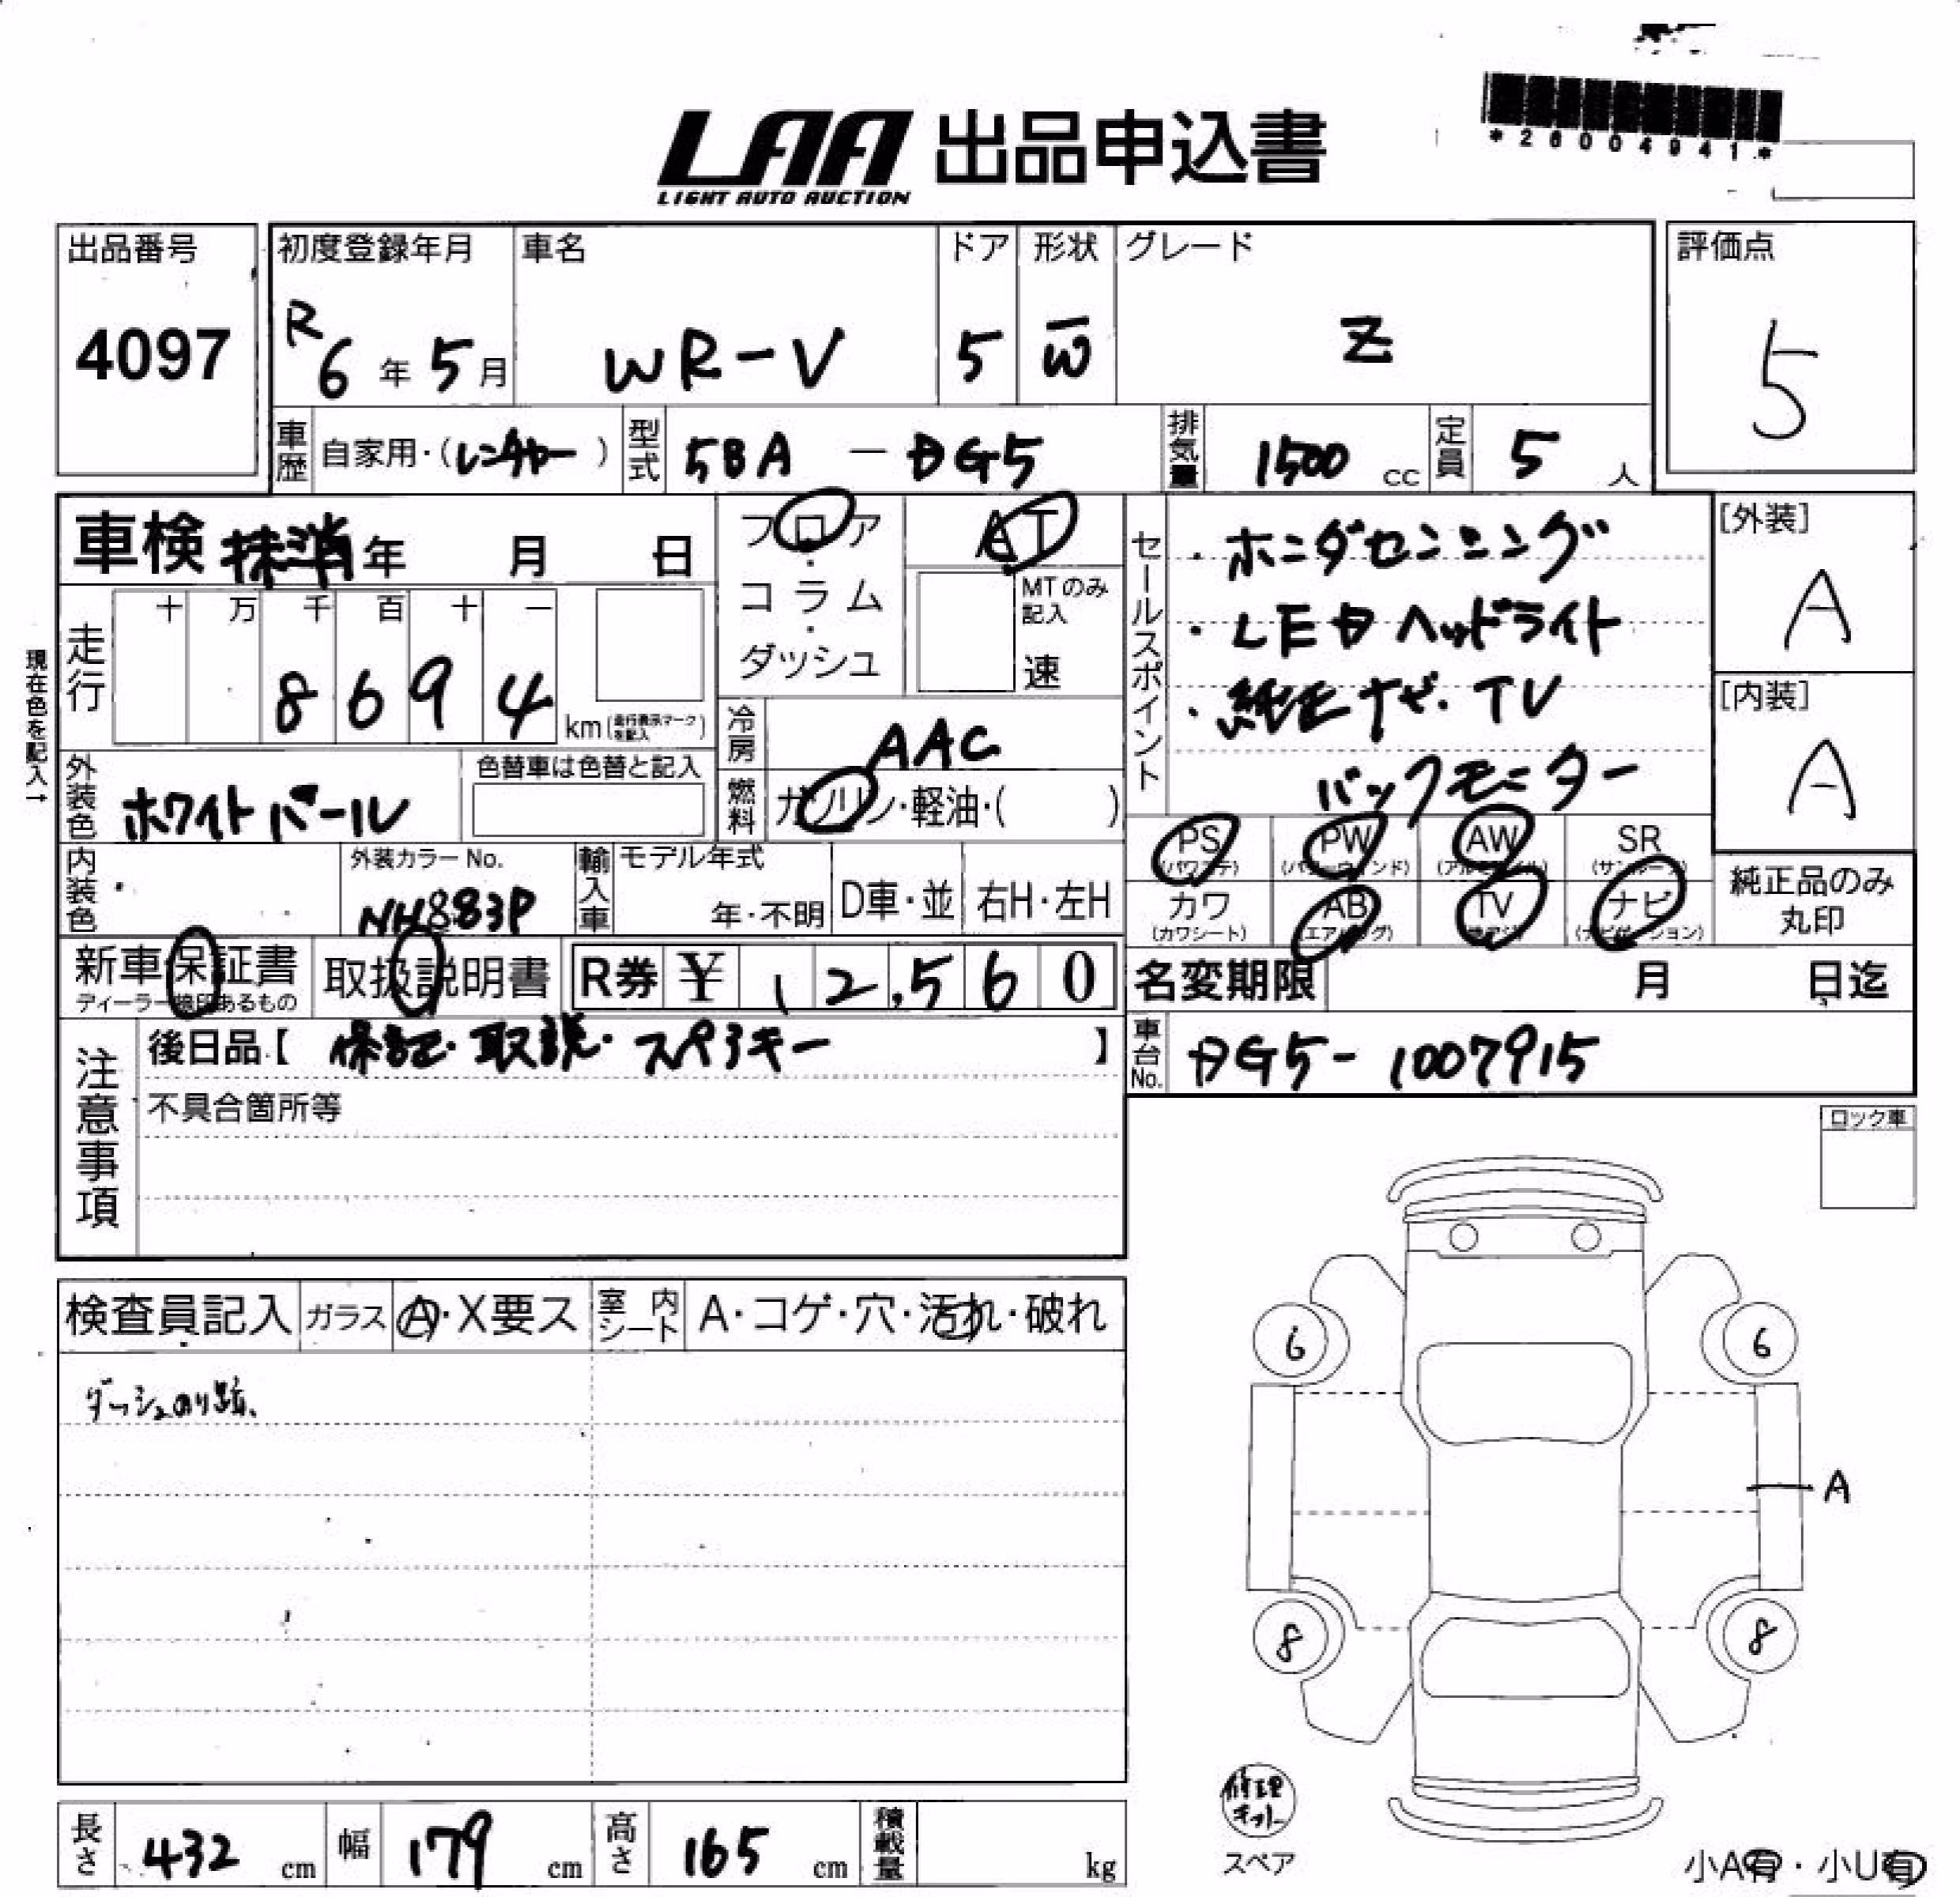 *26004941*
LAA 出品申込書
LIGHT AUTO AUCTION
出品番号
4097
初度登録年月
R6年5月
車名
WR-V
ドア
5
形状
W
グレード
Z
評価点
5
車歴 自家用・(レンタカー)
型式 5BA - DG5
排気量 1500 cc
定員 5 人
車検 抹消 年 月 日
走行
十 万 千 百 十 一
8 6 9 4 km(走行表示マークを記入)
現在色を記入→
外装色 ホワイトパール
色替車は色替と記入
内装色
外装カラーNo.
NH883P
輸入車
モデル年式
年・不明
D車・並
右H・左H
フロア
・
コラム
・
ダッシュ
AT
MTのみ記入
速
冷房 AAC
燃料 ガソリン・軽油・( )
セールスポイント
・ホンダセンシング
・LEDヘッドライト
・純正ナビ・TV
バックモニター
[外装]
A
[内装]
A
PS (パワステ)
PW (パワーウィンド)
AW (アルミホイル)
SR (サンルーフ)
カワ (カワシート)
AB (エアバッグ)
TV
ナビ (ナビゲーション)
純正品のみ
丸印
新車保証書
ディーラー捺印あるもの
取扱説明書
R券 ¥ 12,560
名変期限 月 日迄
注意事項
後日品【 保証・取説・スペアキー 】
不具合箇所等
車台No. DG5-1007915
ロック車
検査員記入
ガラス A・X要ス
室内シート A・コゲ・穴・汚れ・破れ
ダッシュのり跡、
6 6
A
8 8
修理
キット
スペア
長さ 432 cm
幅 179 cm
高さ 165 cm
積載量 kg
小A有・小U有